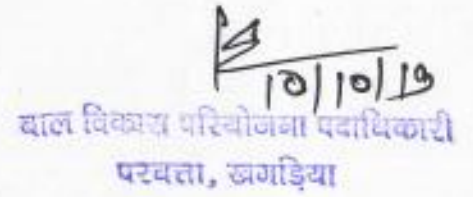 10/10/19
बाल विकास परियोजना पदाधिकारी
परवत्ता, खगड़िया